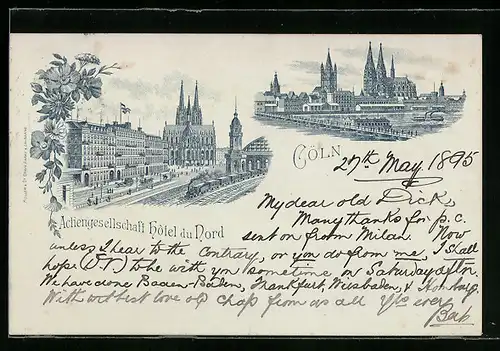 CÖLN
27th May 1895
Actiengesellschaft Hôtel du Nord
My dear old Dick,
Many thanks for p.c.
sent on from Milan. Now
unless I hear to the contrary, or you do from me, I shall
hope (D.V.) to be with you sometime on Saturday aftn.
We have done Baden-Baden, Frankfurt, Wiesbaden, & Homburg.
With wd best love old chap from us all Yrs ever
Bob